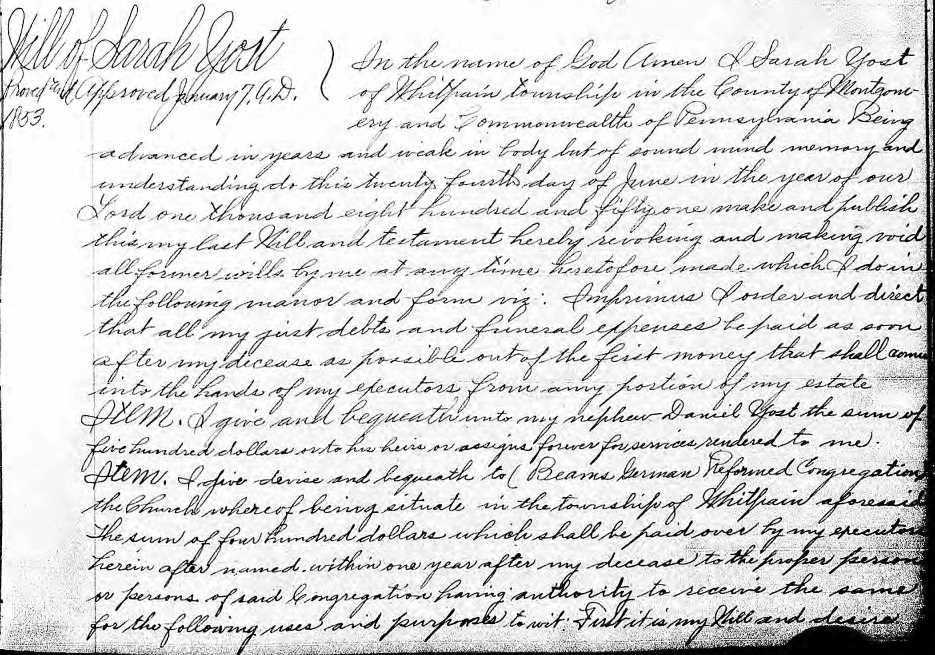 Will of Sarah Yost
Proved and Approved January 7. A.D.
1853.
In the name of God Amen I Sarah Yost
of Whitpain township in the County of Montgom-
ery and Commonwealth of Pennsylvania Being
advanced in years and weak in body but of sound mind memory and
understanding do this twenty fourth day of June in the year of our
Lord one thousand eight hundred and fifty one make and publish
this my last Will and testament hereby revoking and making void
all former wills by me at any time heretofore made which I do in
the following manor and form viz: Imprimus I order and direct
that all my just debts and funeral expenses be paid as soon
after my decease as possible out of the first money that shall come
into the hands of my executors from any portion of my estate
Item. I give and bequeath unto my nephew Daniel Yost the sum of
five hundred dollars or to his heirs or assigns forever for services rendered to me.
Item. I give devise and bequeath to (Beams German Reformed Congregation,
the Church whereof being situate in the township of Whitpain aforesaid
The sum of four hundred dollars which shall be paid over by my executors
herein after named within one year after my decease to the proper person
or persons of said Congregation having authority to receive the same
for the following uses and purposes to wit: First it is my Will and desire